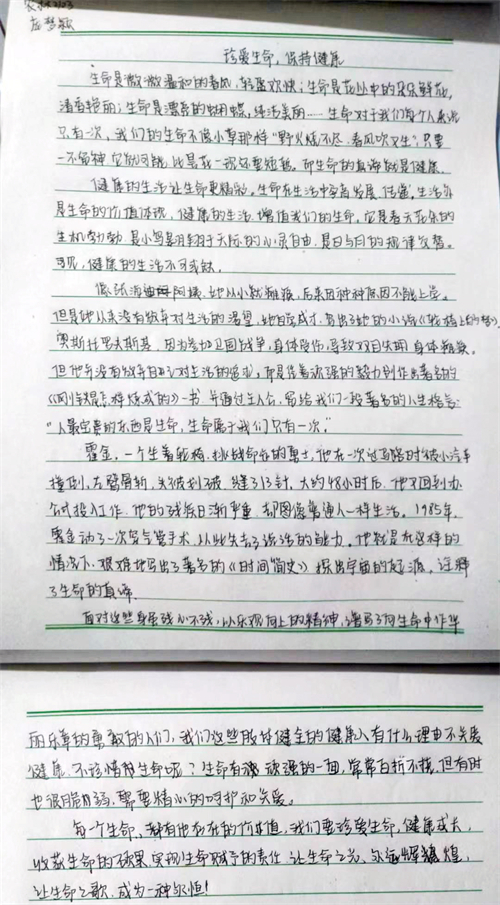 农林2123
应梦颖
珍爱生命,保持健康
生命是微微温和的春风,轻盈欢快;生命是花丛中的朵朵鲜花,
清香艳丽;生命是漂亮的蝴蝶,纯洁美丽……生命对于我们每个人来说
只有一次,我们的生命不像小草那样“野火烧不尽,春风吹又生”,只要
一不留神,它就可能比昙花一现还要短暂。而生命的真谛就是健康。
健康的生活让生命更精彩。生命在生活中孕育发展、传递,生活亦
是生命的价值体现,健康的生活,增值我们的生命,它是春天花朵的
生机勃勃,是小鸟翱翔于天际的心灵自由,是日与月的规律交替。
可见,健康的生活不可或缺。
像张海迪阿姨,她从小就瘫痪,后来因种种原因不能上学。
但是她从来没有放弃对生活的渴望,她自学成才,写出了她的小说《轮椅上的梦》,
奥斯托里夫斯基,因为参加卫国战争,身体受伤,导致双目失明,身体瘫痪。
但他并没有放弃自己对生活的追求,而是凭着顽强的毅力创作出著名的
《钢铁是怎样炼成的》一书,并通过主人公,写给我们一段著名的人生格言:
“人最宝贵的东西是生命,生命属于我们只有一次。”
霍金,一个坐着轮椅,挑战命运的勇士,他在一次过马路时被小汽车
撞倒,左臂骨折,头被划破,缝了13针,大约48小时后,他又回到办
公式投入工作,他的残疾日渐严重,却图像普通人一样生活。1985年,
霍金动了一次穿气管手术,从此失去了说话的能力。他就是在这样的
情况下,艰难地写出了著名的《时间简史》,探出宇宙的起源,诠释
了生命的真谛。
面对这些身残心不残,以乐观向上的精神,谱写了向生命中作华
丽乐章的勇敢的人们,我们这些肢体健全的健康人有什么理由不关爱
健康,不珍惜生命呢?生命有顽强的一面,常常百折不挠,但有时
也很脆弱,需要精心的呵护和关爱。
每个生命,都有他存在的价值,我们要珍爱生命,健康成长,
收获生命的硕果,实现生命赋予的责任,让生命之光,永远辉煌,
让生命之歌,成为一种永恒!